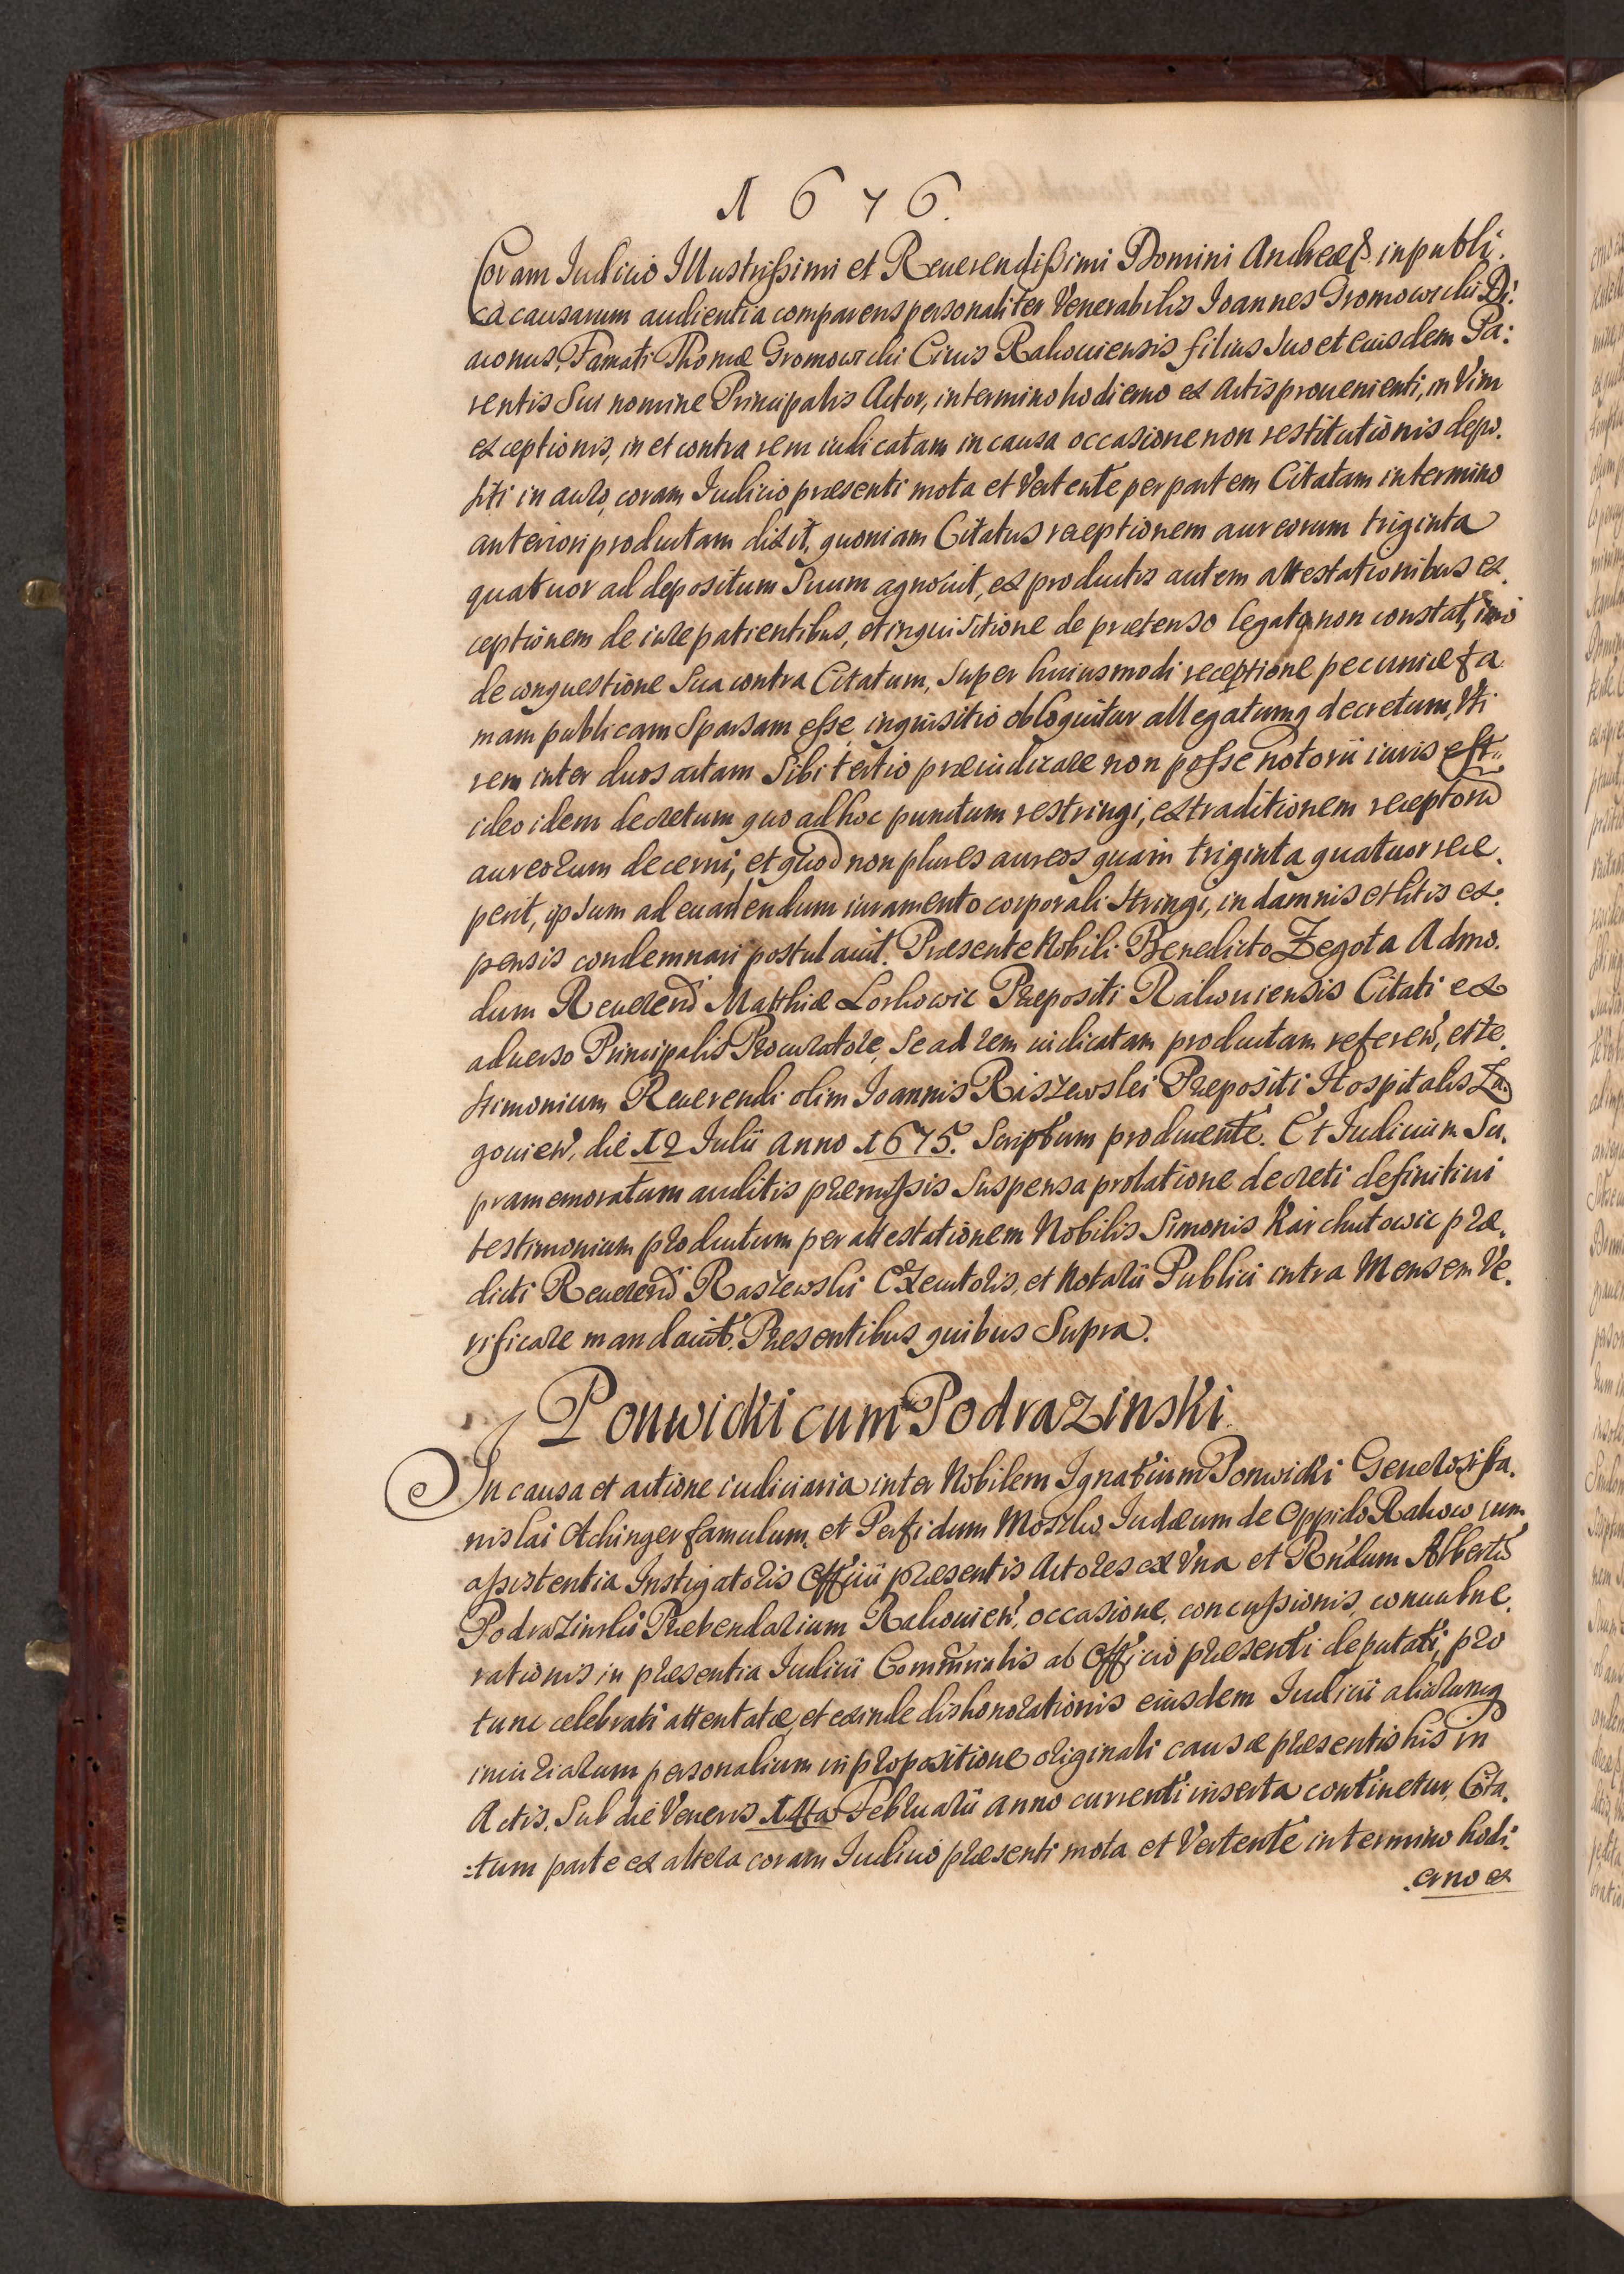 1676.
Coram Iudicio Illustrißimi et Reuerendißimi Domini Andreæ &. in publi.
ca causarum audientia comparens personaliter Venerabilis Ioannes Gromowicki Di:
aconus, Famati Thomæ Gromowicki Ciuis Rakouiensis filius Suo et eiusdem Pa:
rentis Sui nomine Principalis Actor, in termino hodierno ex Actis proueniente, in Vim
exceptionis, in et contra rem iudicatam in causa occasione non restitutionis depo.
siti in auro, coram Iudicio præsenti mota et Vertente per partem Citatam in termino
anteriori productam dixit, quoniam Citatus receptionem aureorum triginta
quatuor ad depositum Suum agnouit, ex productis autem attestationibus ex.
ceptionem de iure patientibus, et inquisitione de prætenso legato non constat, imo
de conquestione Sua contra Citatum, Super huiusmodi receptione pecuniæ fa
mam publicam Sparsam eße inquisitio obloquitur allegatumq decretum, Vti
rem inter duos actam Sibi tertio præiudicare non poße notorii iuris est.
ideo idem decretum quo ad hoc punctum restringi, extraditionem receptorū
aureorum decerni, et quod non plures aureos quam triginta quatuor rece.
perit, ipsum ad euadendum iuramento corporali Stringi, in damnis et litis ex.
pensis condemnari postulauit. Præsente Nobili Benedicto Zegota Admo.
dum Reuerend Matthiæ Loskowic Præpositi Rakouiensis Citati ex
aduerso Principalis Procuratore, Se ad rem iudicatam productam referen, et te.
stimonium Reuerendi olim Ioannis Raszewski Præpositi Hospitalis Za
gouien, die 12 Iulii Anno 1675. Scriptum producente. Et Iudicium Su.
pramemoratum auditis præmißis Suspensa prolatione decreti definitiui
testimonium productum per attestationem Nobilis Simonis Karchutowic præ.
dicti Reuerend Raszewski Exeutoris, et Notarii Publici intra Mensem Ve.
rificare mandauit. Præsentibus quibus Supra.
Ponwicki cum Podrazinski.
In causa et actione iudiciaria inter Nobilem Ignatium Ponwicki Generosi Sta.
nislai Achinger famulum, et Perfidum Moszko Iudæum de Oppido Rakow cum
aßistentia Instigatoris Officii præsentis Actores ex Vna et Rndum Albertū
Podrazinski Præbendarium Rakouien, occasione, concußionis, conuulne.
rationis in præsentia Iudicii Commißrialis ab Officio præsenti deputati, pro
tunc celebrati attentatæ, et exinde dishonorationis eiusdem Iudicii aliarumq
iniuriarum personalium in propositione originali causæ præsentis his in
Actis, Sub die Veneris 14ta Februarii anno currenti inserta continetur, Cita.
:tum parte ex altera coram Iudicio præsenti mota et Vertente in termino hodi:
.erno ex